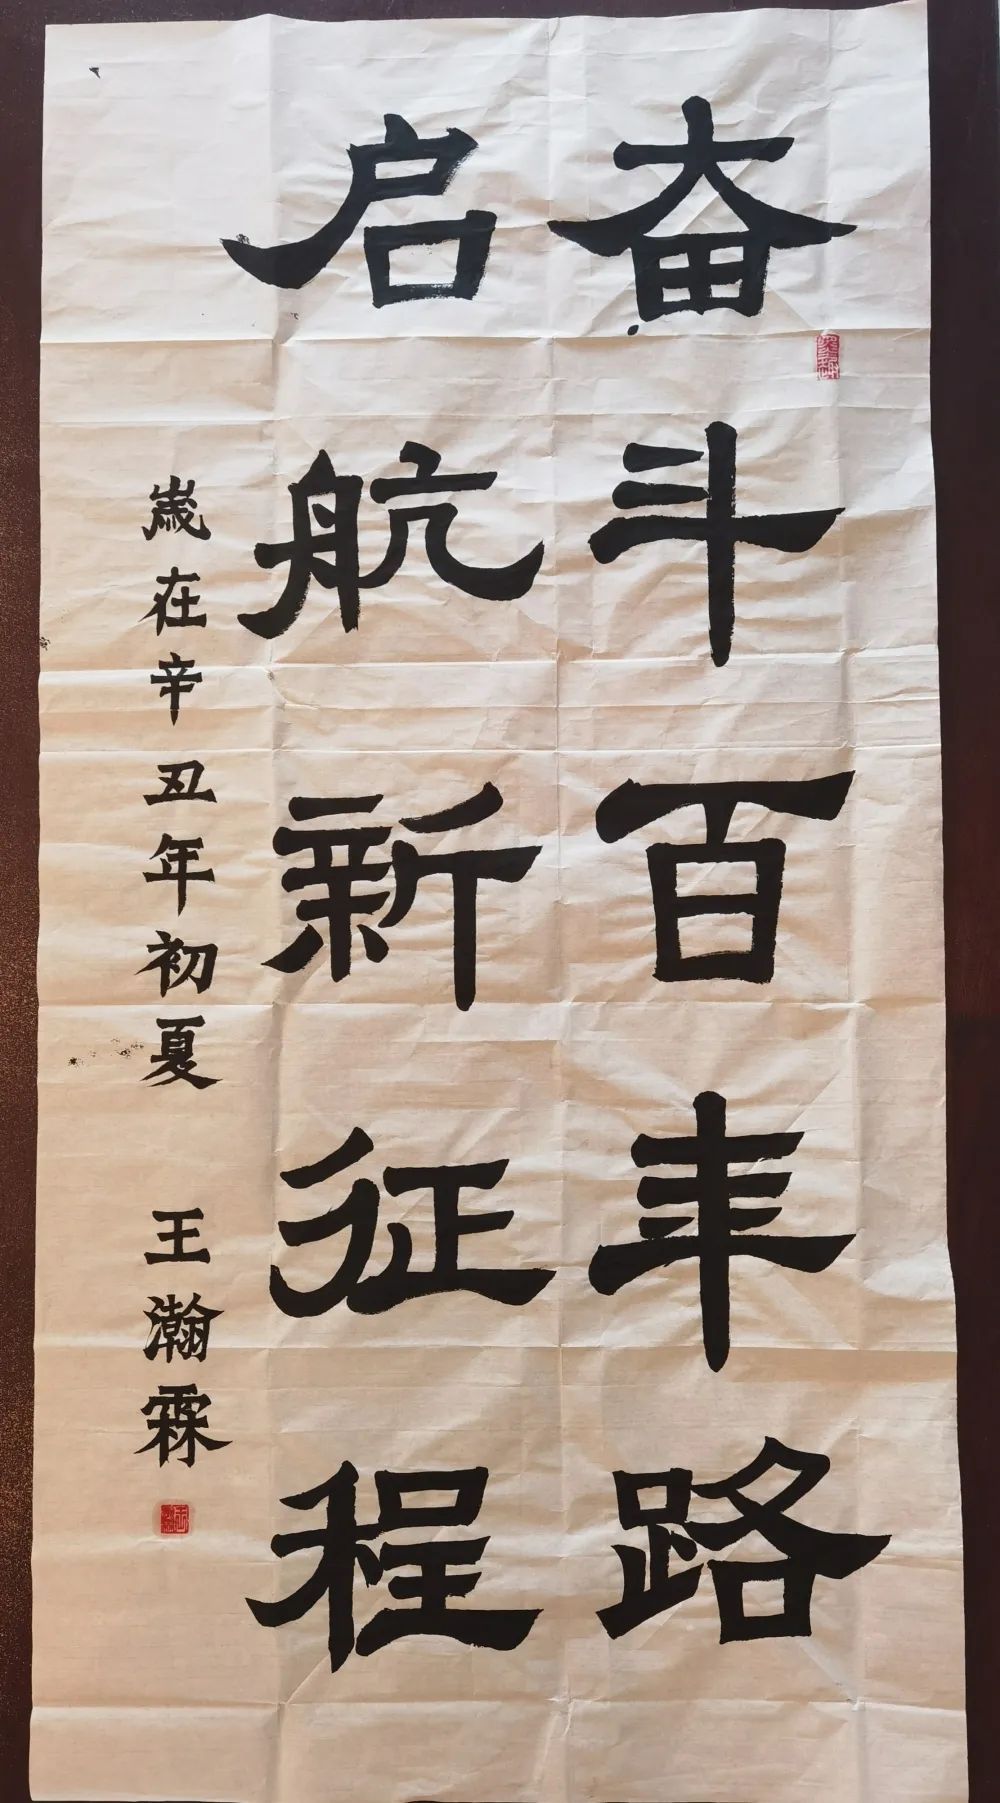 奋斗百年路
启航新征程
歲在辛丑年初夏 王瀚霖